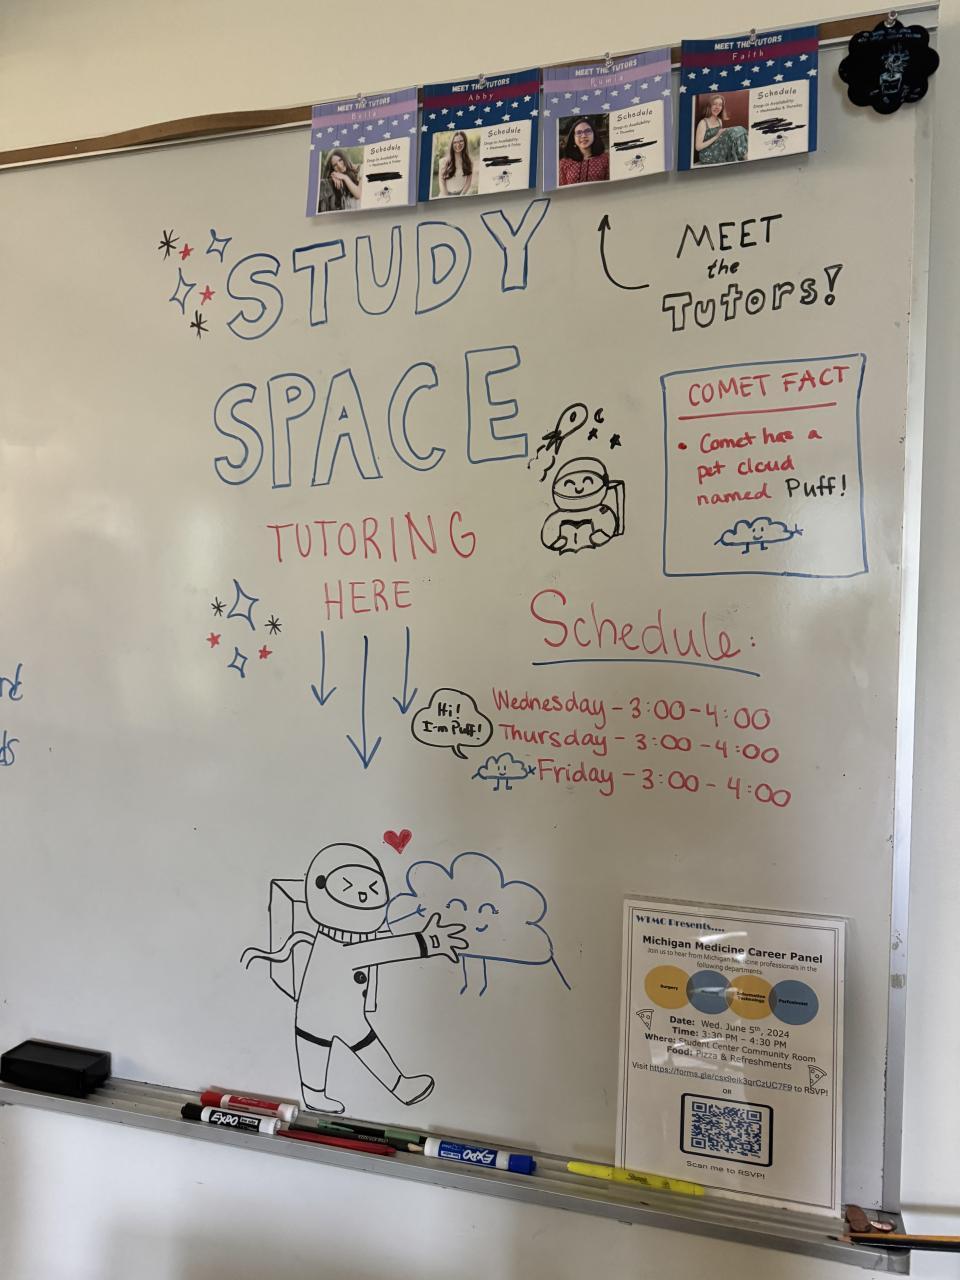 MEET THE TUTORS
Bella
Schedule
Drop-in Availability
• Wednesday & Friday
MEET THE TUTORS
Abby
Schedule
Drop-in Availability
• Wednesday & Friday
MEET THE TUTORS
Rumia
Schedule
Drop-in Availability
• Thursday
MEET THE TUTORS
Faith
Schedule
Drop-in Availability
• Wednesday & Thursday
STUDY
SPACE
MEET
the
Tutors!
COMET FACT
• Comet has a
pet cloud
named Puff!
TUTORING
HERE
Schedule:
Wednesday - 3:00-4:00
Thursday - 3:00-4:00
Friday - 3:00-4:00
Hi!
I'm Puff!
WTMC Presents....
Michigan Medicine Career Panel
Join us to hear from Michigan Medicine professionals in the
following departments:
Surgery
Information
Technology
Perfusionist
Date: Wed. June 5th, 2024
Time: 3:30 PM – 4:30 PM
Where: Student Center Community Room
Food: Pizza & Refreshments
Visit to RSVP!
OR
Scan me to RSVP!
EXPO
EXPO
Sharpie